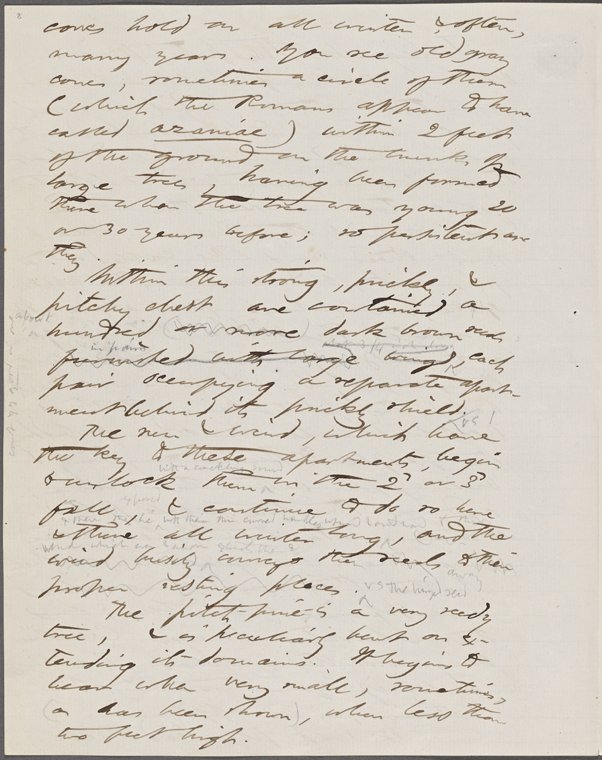 8
cones hold on all winter & often,
many years. You see old gray
cones, sometimes a circle of them
(which the Romans appear to have
called azaniae) within 2 feet
of the ground on the trunks of
large trees, having been formed
there when the tree was young 20
or 30 years before; so persistent are
they.
Within this strong, prickly, &
pitchy chest are contained, a
hundred or more dark brown seeds
in pairs
furnished with large wings, each
pair occupying a separate apart-
ment behind its prickly shield.
The sun & wind, which have
the key to these apartments, begin
with a crackling sound
to unlock them in the 2d or 3d
fall, & continue to do so here
& there all winter long, and the
wind busily conveys their seeds to their
proper resting places.
v s the bird seed
The pitch pine is a very seedy
tree, & is peculiarly bent on ex-
tending its domains. It begins to
bear when very small, sometimes,
(as has been shown), when less than
two feet high.